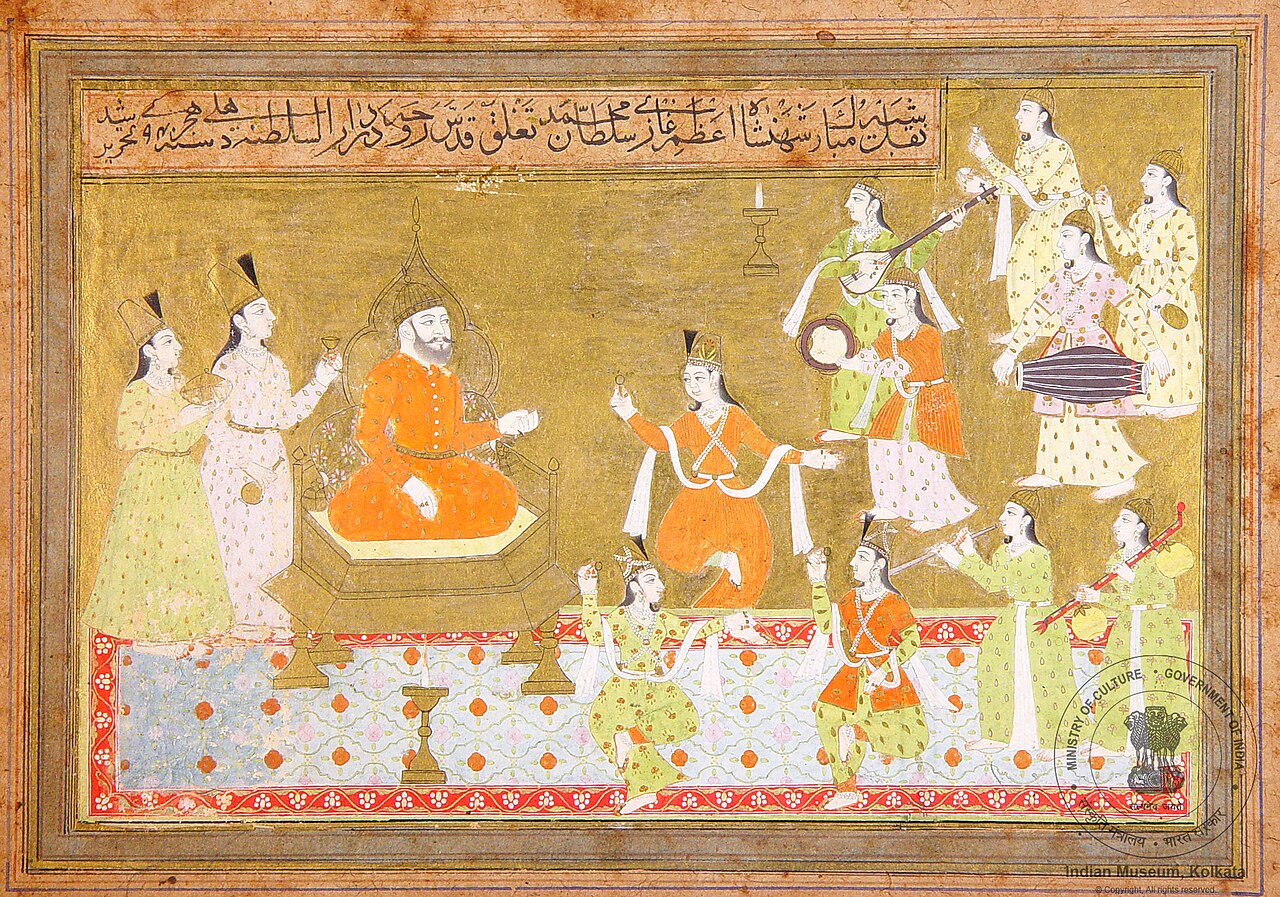 شبیه
نقل مبارک شهنشاه اعظم غازی سلطان محمد تغلق قدس روحه در دارالسلطنه دهلی سنه هجری تحریر شد
MINISTRY OF CULTURE
GOVERNMENT OF INDIA
सत्यमेव जयते
संस्कृति मंत्रालय • भारत सरकार
Indian Museum, Kolkata
© Copyright, All rights reserved.